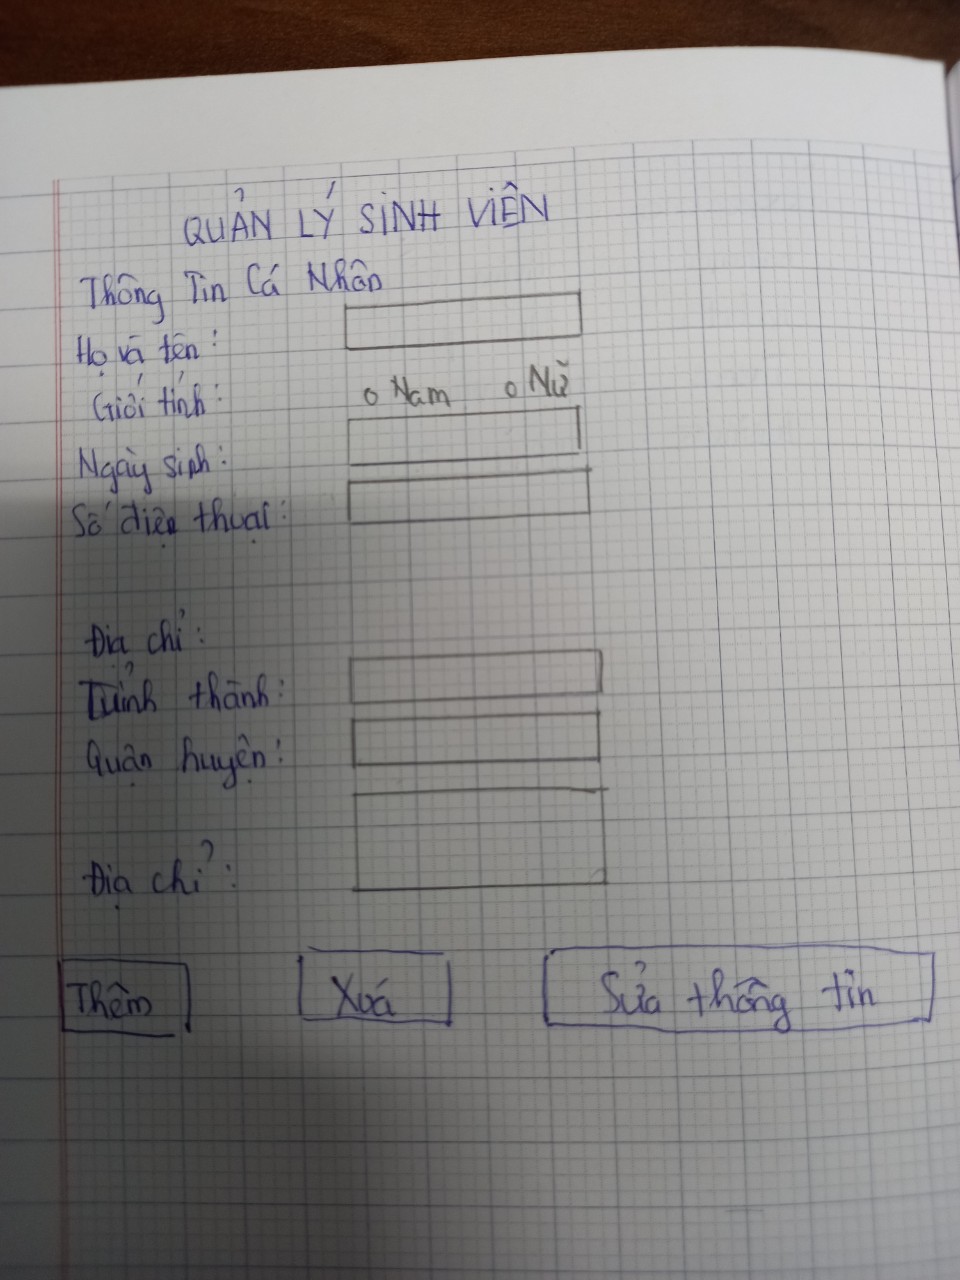 QUẢN LÝ SINH VIÊN
Thông Tin Cá Nhân
Họ và tên:
Giới tính: o Nam o Nữ
Ngày sinh:
Số điện thoại:
Địa chỉ:
Tỉnh thành:
Quận huyện:
Địa chỉ:
Thêm Xoá Sửa thông tin